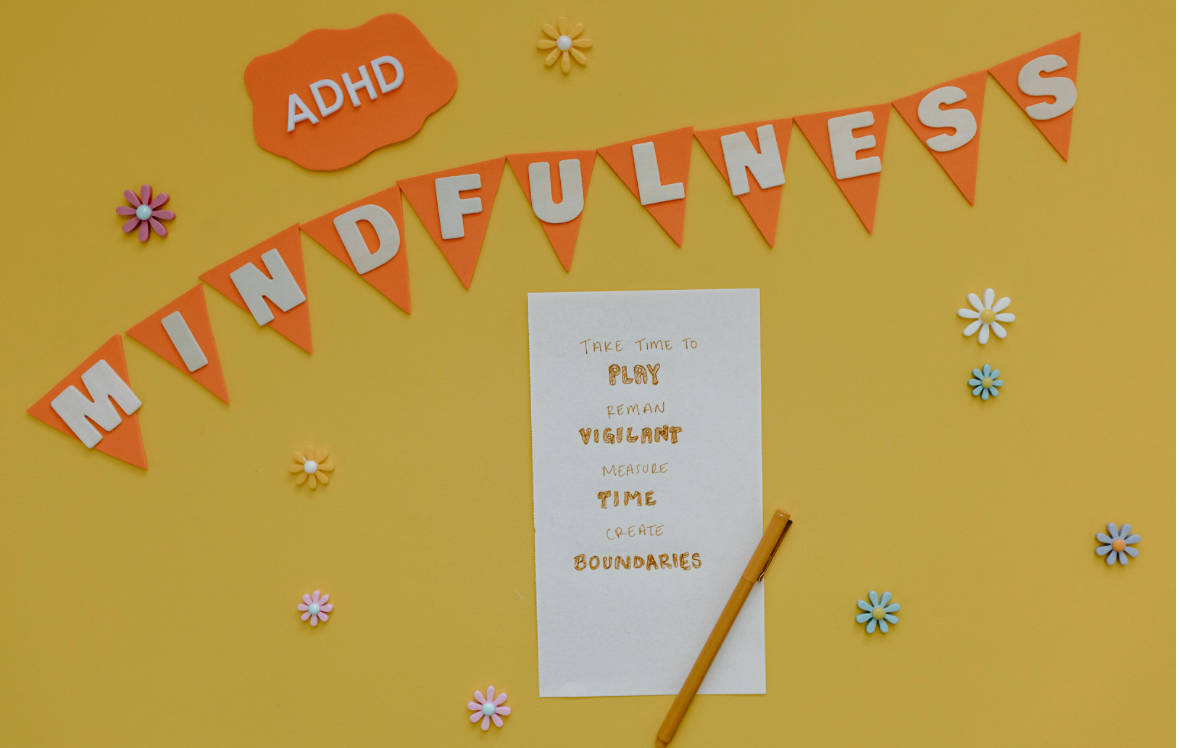 ADHD
MINDFULNESS
TAKE TIME TO
PLAY
REMAN
VIGILANT
MEASURE
TIME
CREATE
BOUNDARIES